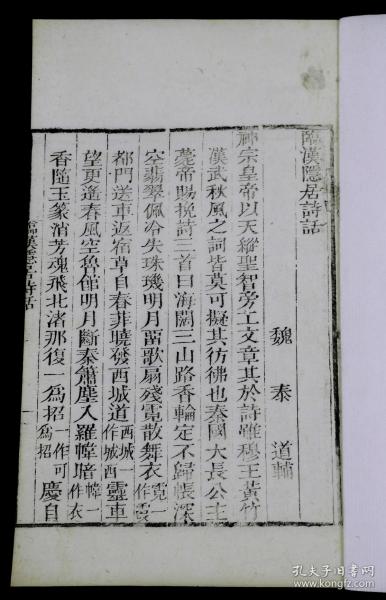 臨漢隱居詩話
魏泰 道輔
神宗皇帝以天縱聖智旁工文章其於詩雖穆王黃竹
漢武秋風之詞皆莫可擬其彷彿也秦國大長公主
薨帝賜挽詩三首曰海闕三山路香輪定不歸帳深
空翡翠佩冷失珠璣明月留歌扇殘霓散舞衣霓一作雲
都門送車返宿草自春菲曉發西城道西城一作城西靈車
望更遙春風空魯館明月斷秦簫塵入羅幃暗幃一作衣
香隨玉篆消芳魂飛北渚那復一為招一作可為招慶自
臨漢隱居詩話
孔夫子旧书网
www.kongfz.com